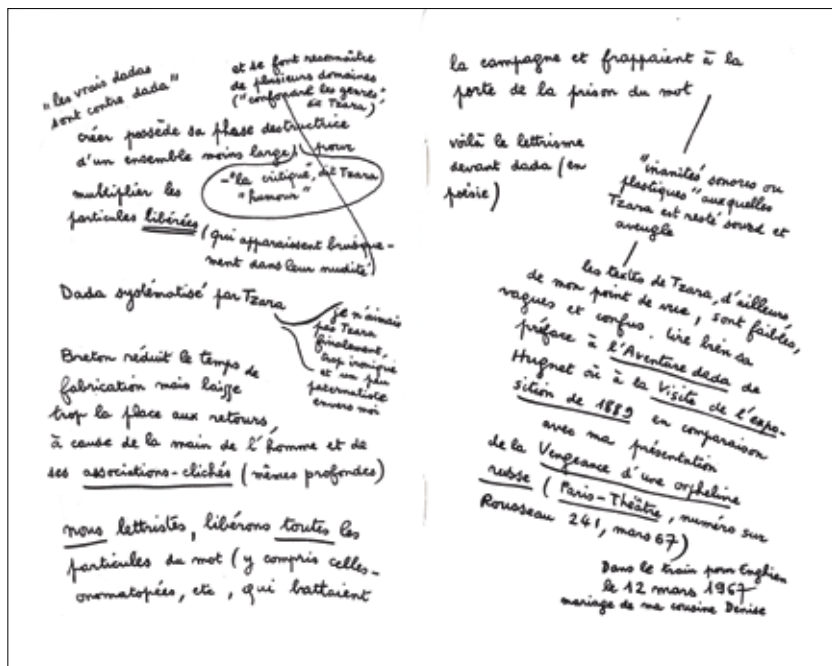 "les vrais dadas
sont contre dada"
et se font reconnaître
de plusieurs domaines
("confondant les genres"
de Tzara)
créer possède sa phase destructrice
d'un ensemble moins large, pour
— "la critique", dit Tzara
"humour"
multiplier les
particules libérées (qui apparaissent brusque-
ment dans leur nudité)
Dada systématisé par Tzara
je n'aimais
pas Tzara
finalement,
trop ironique
et un peu
paternaliste
envers moi
Breton réduit le temps de
fabrication mais laisse
trop la place aux retours,
à cause de la main de l'homme et de
ses associations-clichés (mêmes profondes)
nous lettristes, libérons toutes les
particules du mot (y compris celles-
onomatopées, etc, qui battaient
la campagne et frappaient à la
porte de la prison du mot
voilà le lettrisme
devant dada (en
poésie)
"inanités sonores ou
plastiques" auxquelles
Tzara est resté sourd et
aveugle
les textes de Tzara, d'ailleurs,
de mon point de vue, sont faibles,
vagues et confus. lire bien sa
préface à l'Aventure dada de
Hugnet où à la Visite de l'expo-
sition de 1889 en comparaison
avec ma présentation
de la Vengeance d'une orpheline
russe (Paris-Théâtre, numéro sur
Rousseau 241, mars 67)
Dans le train pour Enghien
le 12 mars 1967
mariage de ma cousine Denise